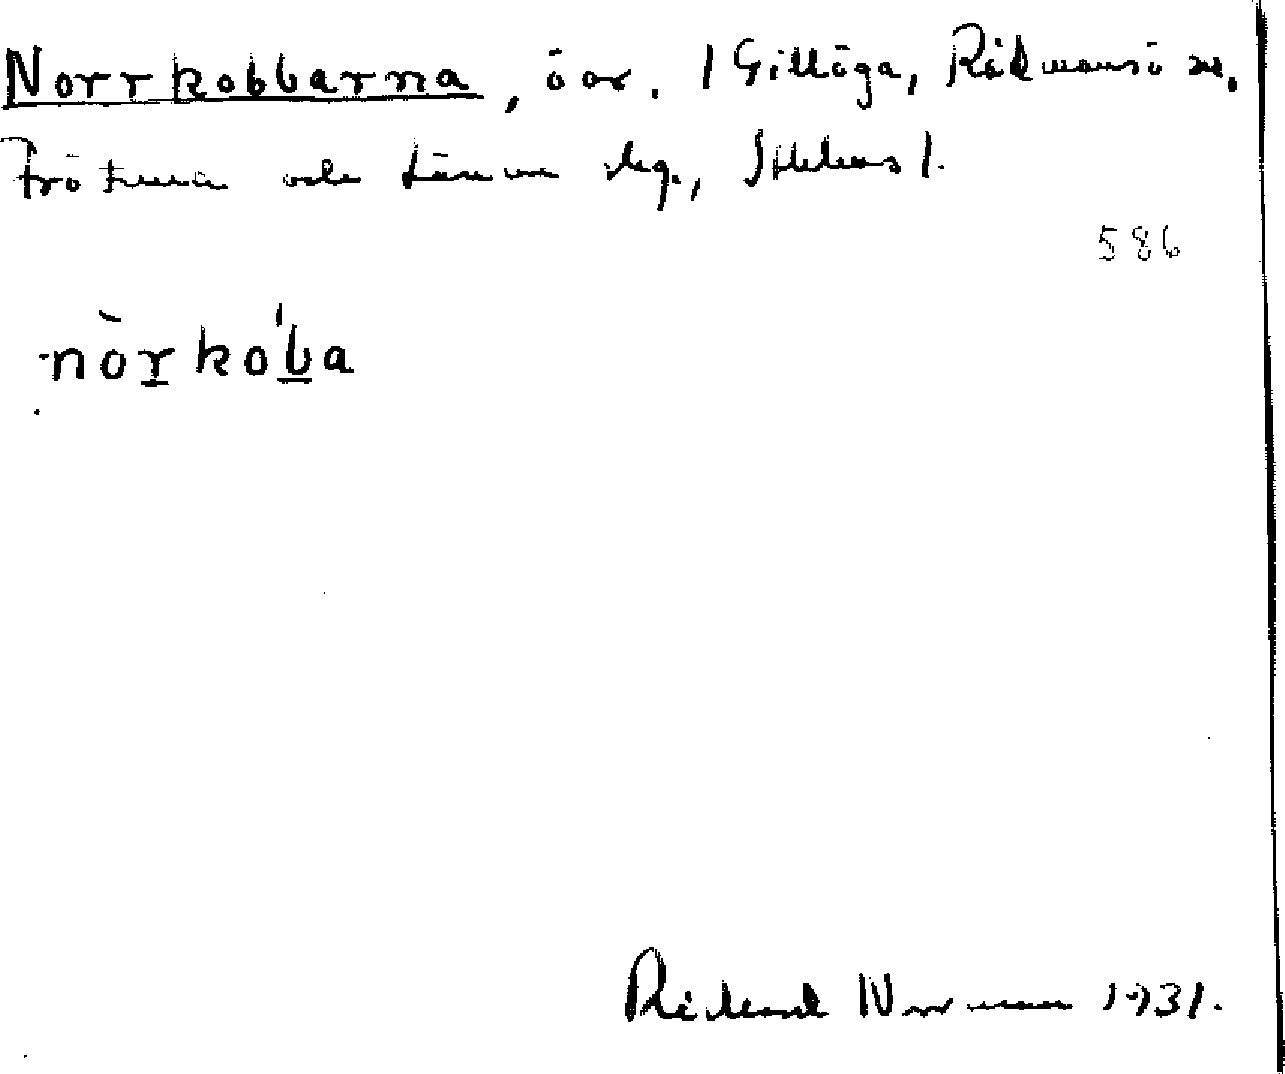 Norrkobbarna, öar. I Gillöga, Rådmansö sn.
Frötuna och Länna skg., Sthlms l.
586
nòrko'ba
Rickard Norman 1931.